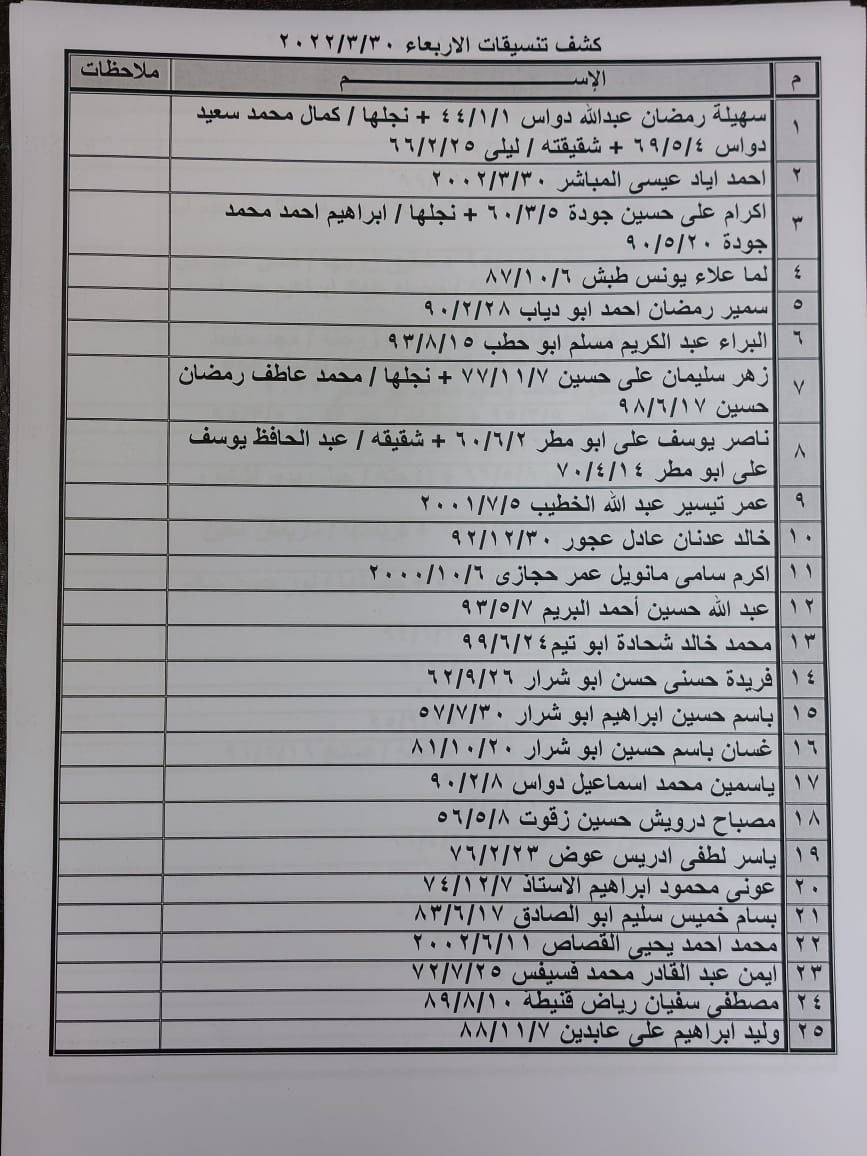 كشف تنسيقات الاربعاء ٢٠٢٢/٣/٣٠
م الإســـــــــم ملاحظات
١ سهيلة رمضان عبدالله دواس ٤٤/١/١ + نجلها / كمال محمد سعيد
دواس ٦٩/٥/٤ + شقيقته / ليلى ٦٦/٢/٢٥
٢ احمد اياد عيسى المباشر ٢٠٠٢/٣/٣٠
٣ اكرام على حسين جودة ٦٠/٣/٥ + نجلها / ابراهيم احمد محمد
جودة ٩٠/٥/٢٠
٤ لما علاء يونس طبش ٨٧/١٠/٦
٥ سمير رمضان احمد ابو دياب ٩٠/٢/٢٨
٦ البراء عبد الكريم مسلم ابو حطب ٩٣/٨/١٥
٧ زهر سليمان على حسين ٧٧/١١/٧ + نجلها / محمد عاطف رمضان
حسين ٩٨/٦/١٧
٨ ناصر يوسف على ابو مطر ٦٠/٦/٢ + شقيقه / عبد الحافظ يوسف
على ابو مطر ٧٠/٤/١٤
٩ عمر تيسير عبد الله الخطيب ٢٠٠١/٧/٥
١٠ خالد عدنان عادل عجور ٩٢/١٢/٣٠
١١ اكرم سامى مانويل عمر حجازى ٢٠٠٠/١٠/٦
١٢ عبد الله حسين أحمد البريم ٩٣/٥/٧
١٣ محمد خالد شحادة ابو تيم٩٩/٦/٢٤
١٤ فريدة حسنى حسن ابو شرار ٦٢/٩/٢٦
١٥ باسم حسين ابراهيم ابو شرار ٥٧/٧/٣٠
١٦ غسان باسم حسين ابو شرار ٨١/١٠/٢٠
١٧ ياسمين محمد اسماعيل دواس ٩٠/٢/٨
١٨ مصباح درويش حسين زقوت ٥٦/٥/٨
١٩ ياسر لطفى ادريس عوض ٧٦/٢/٢٣
٢٠ عونى محمود ابراهيم الاستاذ ٧٤/١٢/٧
٢١ بسام خميس سليم ابو الصادق ٨٣/٦/١٧
٢٢ محمد احمد يحيى القصاص ٢٠٠٢/٦/١١
٢٣ ايمن عبد القادر محمد فسيفس ٧٢/٧/٢٥
٢٤ مصطفى سفيان رياض قنيطة ٨٩/٨/١٠
٢٥ وليد ابراهيم على عابدين ٨٨/١١/٧